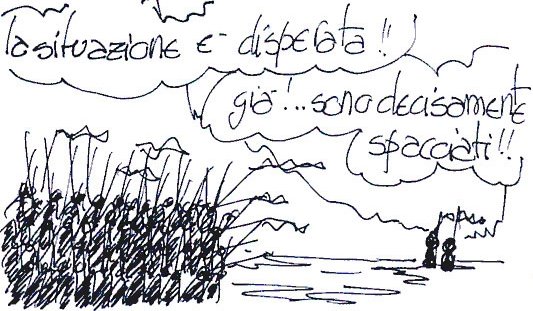 la situazione è disperata!!
già!... sono decisamente
spacciati!!